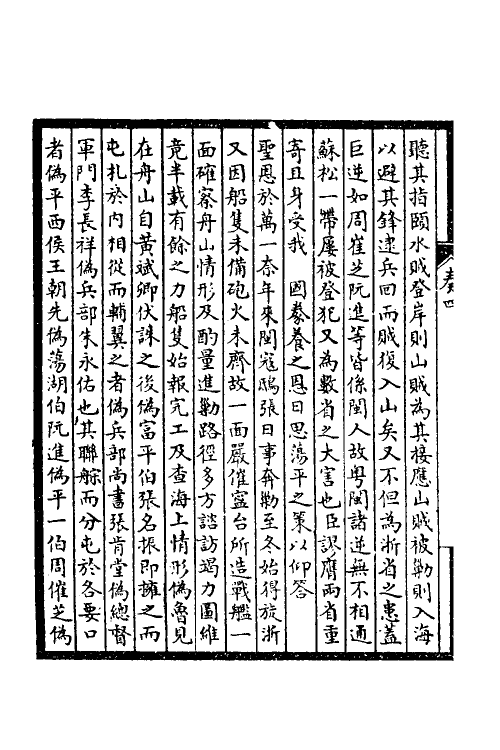 聽其指頤水賊登岸則山賊為其接應山賊被勦則入海
以避其鋒逮兵回而賊復入山矣又不但為浙省之患蓋
巨逆如周崔芝阮進等皆係閩人故粤閩諸逆無不相通
蘇松一帶屢被登犯又為數省之大害也臣謬膺兩省重
寄且身受我　國豢養之恩日思蕩平之策以仰答
聖恩於萬一柰年來閩寇鴟張日事奔勦至冬始得旋浙
又因船隻未備砲火未齊故一面嚴催寧台所造戰艦一
面確察舟山情形及酌量進勦路徑多方諮訪竭力圖維
竟半載有餘之力船隻始報完工及查海上情形偽魯見
在舟山自黃斌卿伏誅之後偽富平伯張名振即擁之而
屯扎於內相從而輔翼之者偽兵部尚書張肯堂偽總督
軍門李長祥偽兵部朱永佑也其聯䑸而分屯於各要口
者偽平西侯王朝先偽蕩湖伯阮進偽平一伯周催芝偽
奏四